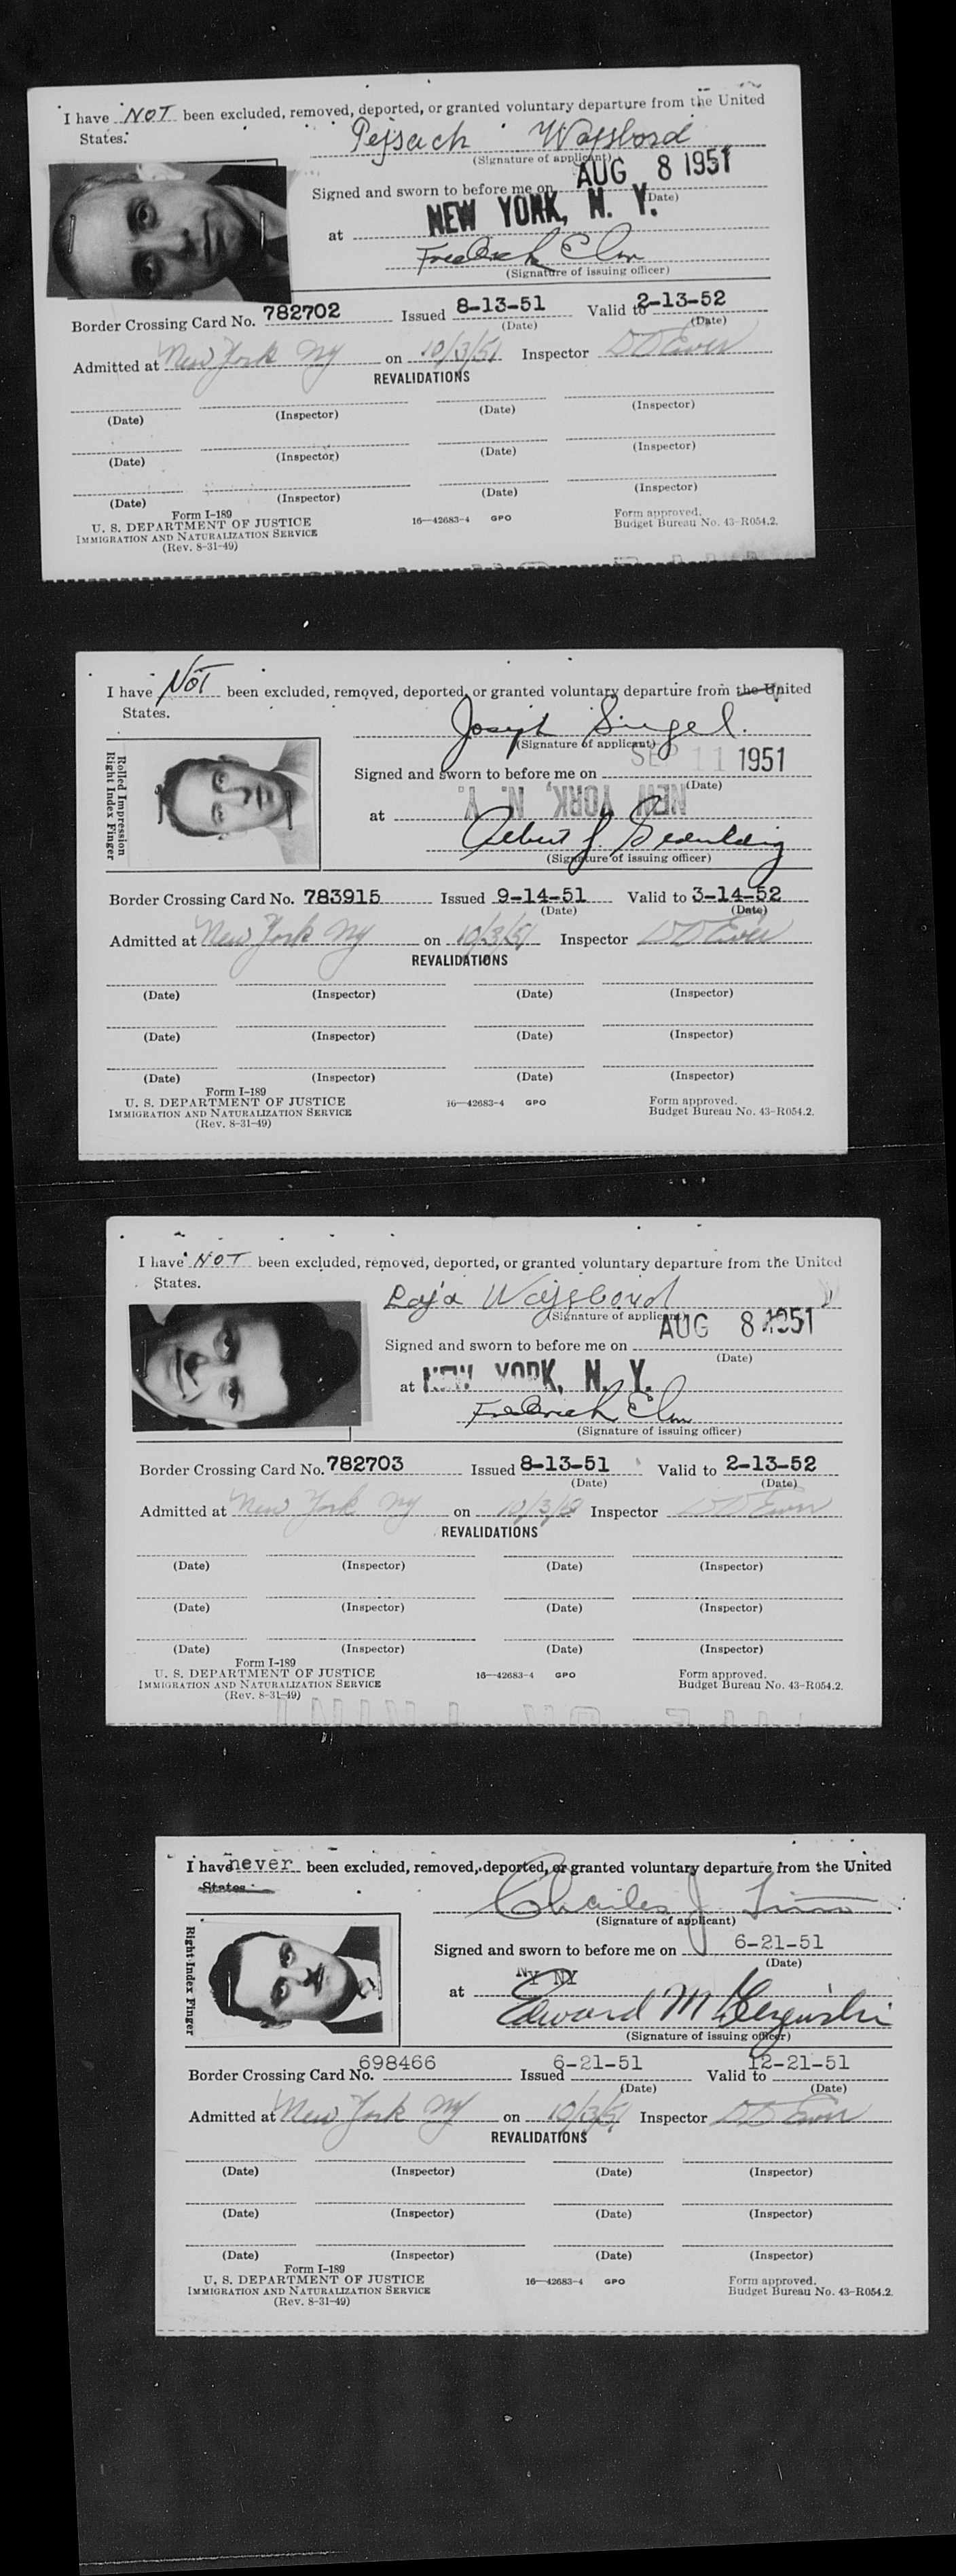 I have NOT been excluded, removed, deported, or granted voluntary departure from the United
States.
Pejsach Wajsbord
(Signature of applicant)
Signed and sworn to before me on AUG 8 1951
(Date)
at NEW YORK, N. Y.
Fredrick Elm
(Signature of issuing officer)
Border Crossing Card No. 782702 Issued 8-13-51 Valid to 2-13-52
(Date) (Date)
Admitted at New York NY on 10/3/51 Inspector
REVALIDATIONS
(Date) (Inspector) (Date) (Inspector)
(Date) (Inspector) (Date) (Inspector)
(Date) (Inspector) (Date) (Inspector)
Form I-189
U. S. DEPARTMENT OF JUSTICE 16—42683-4 GPO Form approved.
IMMIGRATION AND NATURALIZATION SERVICE Budget Bureau No. 43-R054.2.
(Rev. 8-31-49)
I have NOT been excluded, removed, deported, or granted voluntary departure from the United
States.
Joseph Siegel.
(Signature of applicant)
Rolled Impression
Right Index Finger
Signed and sworn to before me on SEP 11 1951
(Date)
at NEW YORK, N. Y.
Albert J
(Signature of issuing officer)
Border Crossing Card No. 783915 Issued 9-14-51 Valid to 3-14-52
(Date) (Date)
Admitted at New York NY on 10/3/51 Inspector
REVALIDATIONS
(Date) (Inspector) (Date) (Inspector)
(Date) (Inspector) (Date) (Inspector)
(Date) (Inspector) (Date) (Inspector)
Form I-189
U. S. DEPARTMENT OF JUSTICE 16—42683-4 GPO Form approved.
IMMIGRATION AND NATURALIZATION SERVICE Budget Bureau No. 43-R054.2.
(Rev. 8-31-49)
I have NOT been excluded, removed, deported, or granted voluntary departure from the United
States.
Raja Wajsbord
(Signature of applicant)
Signed and sworn to before me on AUG 8 1951
(Date)
at NEW YORK, N. Y.
Fredrick Elm
(Signature of issuing officer)
Border Crossing Card No. 782703 Issued 8-13-51 Valid to 2-13-52
(Date) (Date)
Admitted at New York NY on 10/3/51 Inspector
REVALIDATIONS
(Date) (Inspector) (Date) (Inspector)
(Date) (Inspector) (Date) (Inspector)
(Date) (Inspector) (Date) (Inspector)
Form I-189
U. S. DEPARTMENT OF JUSTICE 16—42683-4 GPO Form approved.
IMMIGRATION AND NATURALIZATION SERVICE Budget Bureau No. 43-R054.2.
(Rev. 8-31-49)
I have never been excluded, removed, deported, or granted voluntary departure from the United
States.
Charles J.
(Signature of applicant)
Right Index Finger
Signed and sworn to before me on 6-21-51
(Date)
at NY NY
Edward M
(Signature of issuing officer)
Border Crossing Card No. 698466 Issued 6-21-51 Valid to 12-21-51
(Date) (Date)
Admitted at New York NY on 10/3/51 Inspector
REVALIDATIONS
(Date) (Inspector) (Date) (Inspector)
(Date) (Inspector) (Date) (Inspector)
(Date) (Inspector) (Date) (Inspector)
Form I-189
U. S. DEPARTMENT OF JUSTICE 16—42683-4 GPO Form approved.
IMMIGRATION AND NATURALIZATION SERVICE Budget Bureau No. 43-R054.2.
(Rev. 8-31-49)